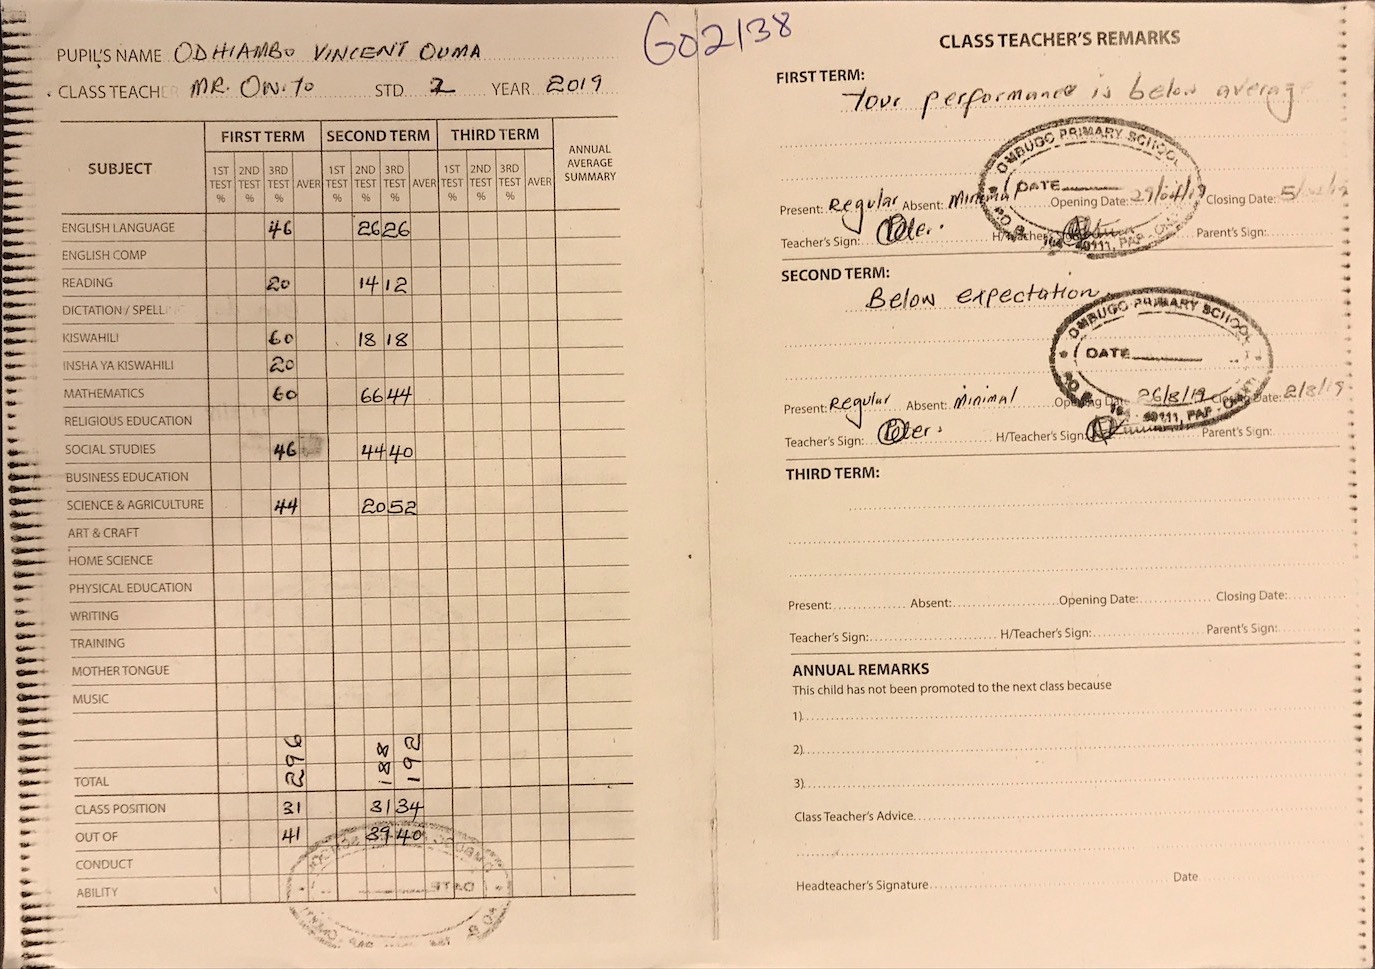 G02138
PUPIL'S NAME ODHIAMBO VINCENT OUMA
CLASS TEACHER MR. ONITO STD 2 YEAR 2019
SUBJECT FIRST TERM SECOND TERM THIRD TERM ANNUAL AVERAGE SUMMARY
1ST TEST % 2ND TEST % 3RD TEST % AVER 1ST TEST % 2ND TEST % 3RD TEST % AVER 1ST TEST % 2ND TEST % 3RD TEST % AVER
ENGLISH LANGUAGE 46 26 26
ENGLISH COMP
READING 20 14 12
DICTATION / SPELL
KISWAHILI 60 18 18
INSHA YA KISWAHILI 20
MATHEMATICS 60 66 44
RELIGIOUS EDUCATION
SOCIAL STUDIES 46 44 40
BUSINESS EDUCATION
SCIENCE & AGRICULTURE 44 20 52
ART & CRAFT
HOME SCIENCE
PHYSICAL EDUCATION
WRITING
TRAINING
MOTHER TONGUE
MUSIC
TOTAL 296 188 192
CLASS POSITION 31 31 34
OUT OF 41 39 40
CONDUCT
ABILITY
DATE
CLASS TEACHER'S REMARKS
FIRST TERM:
Your performance is below average
OMBUGO PRIMARY SCHOOL
DATE
40111, PAP
Present: Regular Absent: Minimal Opening Date: 29/04/19 Closing Date:
Teacher's Sign: H/Teacher's Parent's Sign:
SECOND TERM:
Below expectation.
OMBUGO PRIMARY SCHOOL
DATE
40111, PAP
Present: Regular Absent: Minimal Opening Date: 26/8/19 Closing Date: 2/8/19
Teacher's Sign: H/Teacher's Sign: Parent's Sign:
THIRD TERM:
Present: Absent: Opening Date: Closing Date:
Teacher's Sign: H/Teacher's Sign: Parent's Sign:
ANNUAL REMARKS
This child has not been promoted to the next class because
1)
2)
3)
Class Teacher's Advice
Headteacher's Signature Date